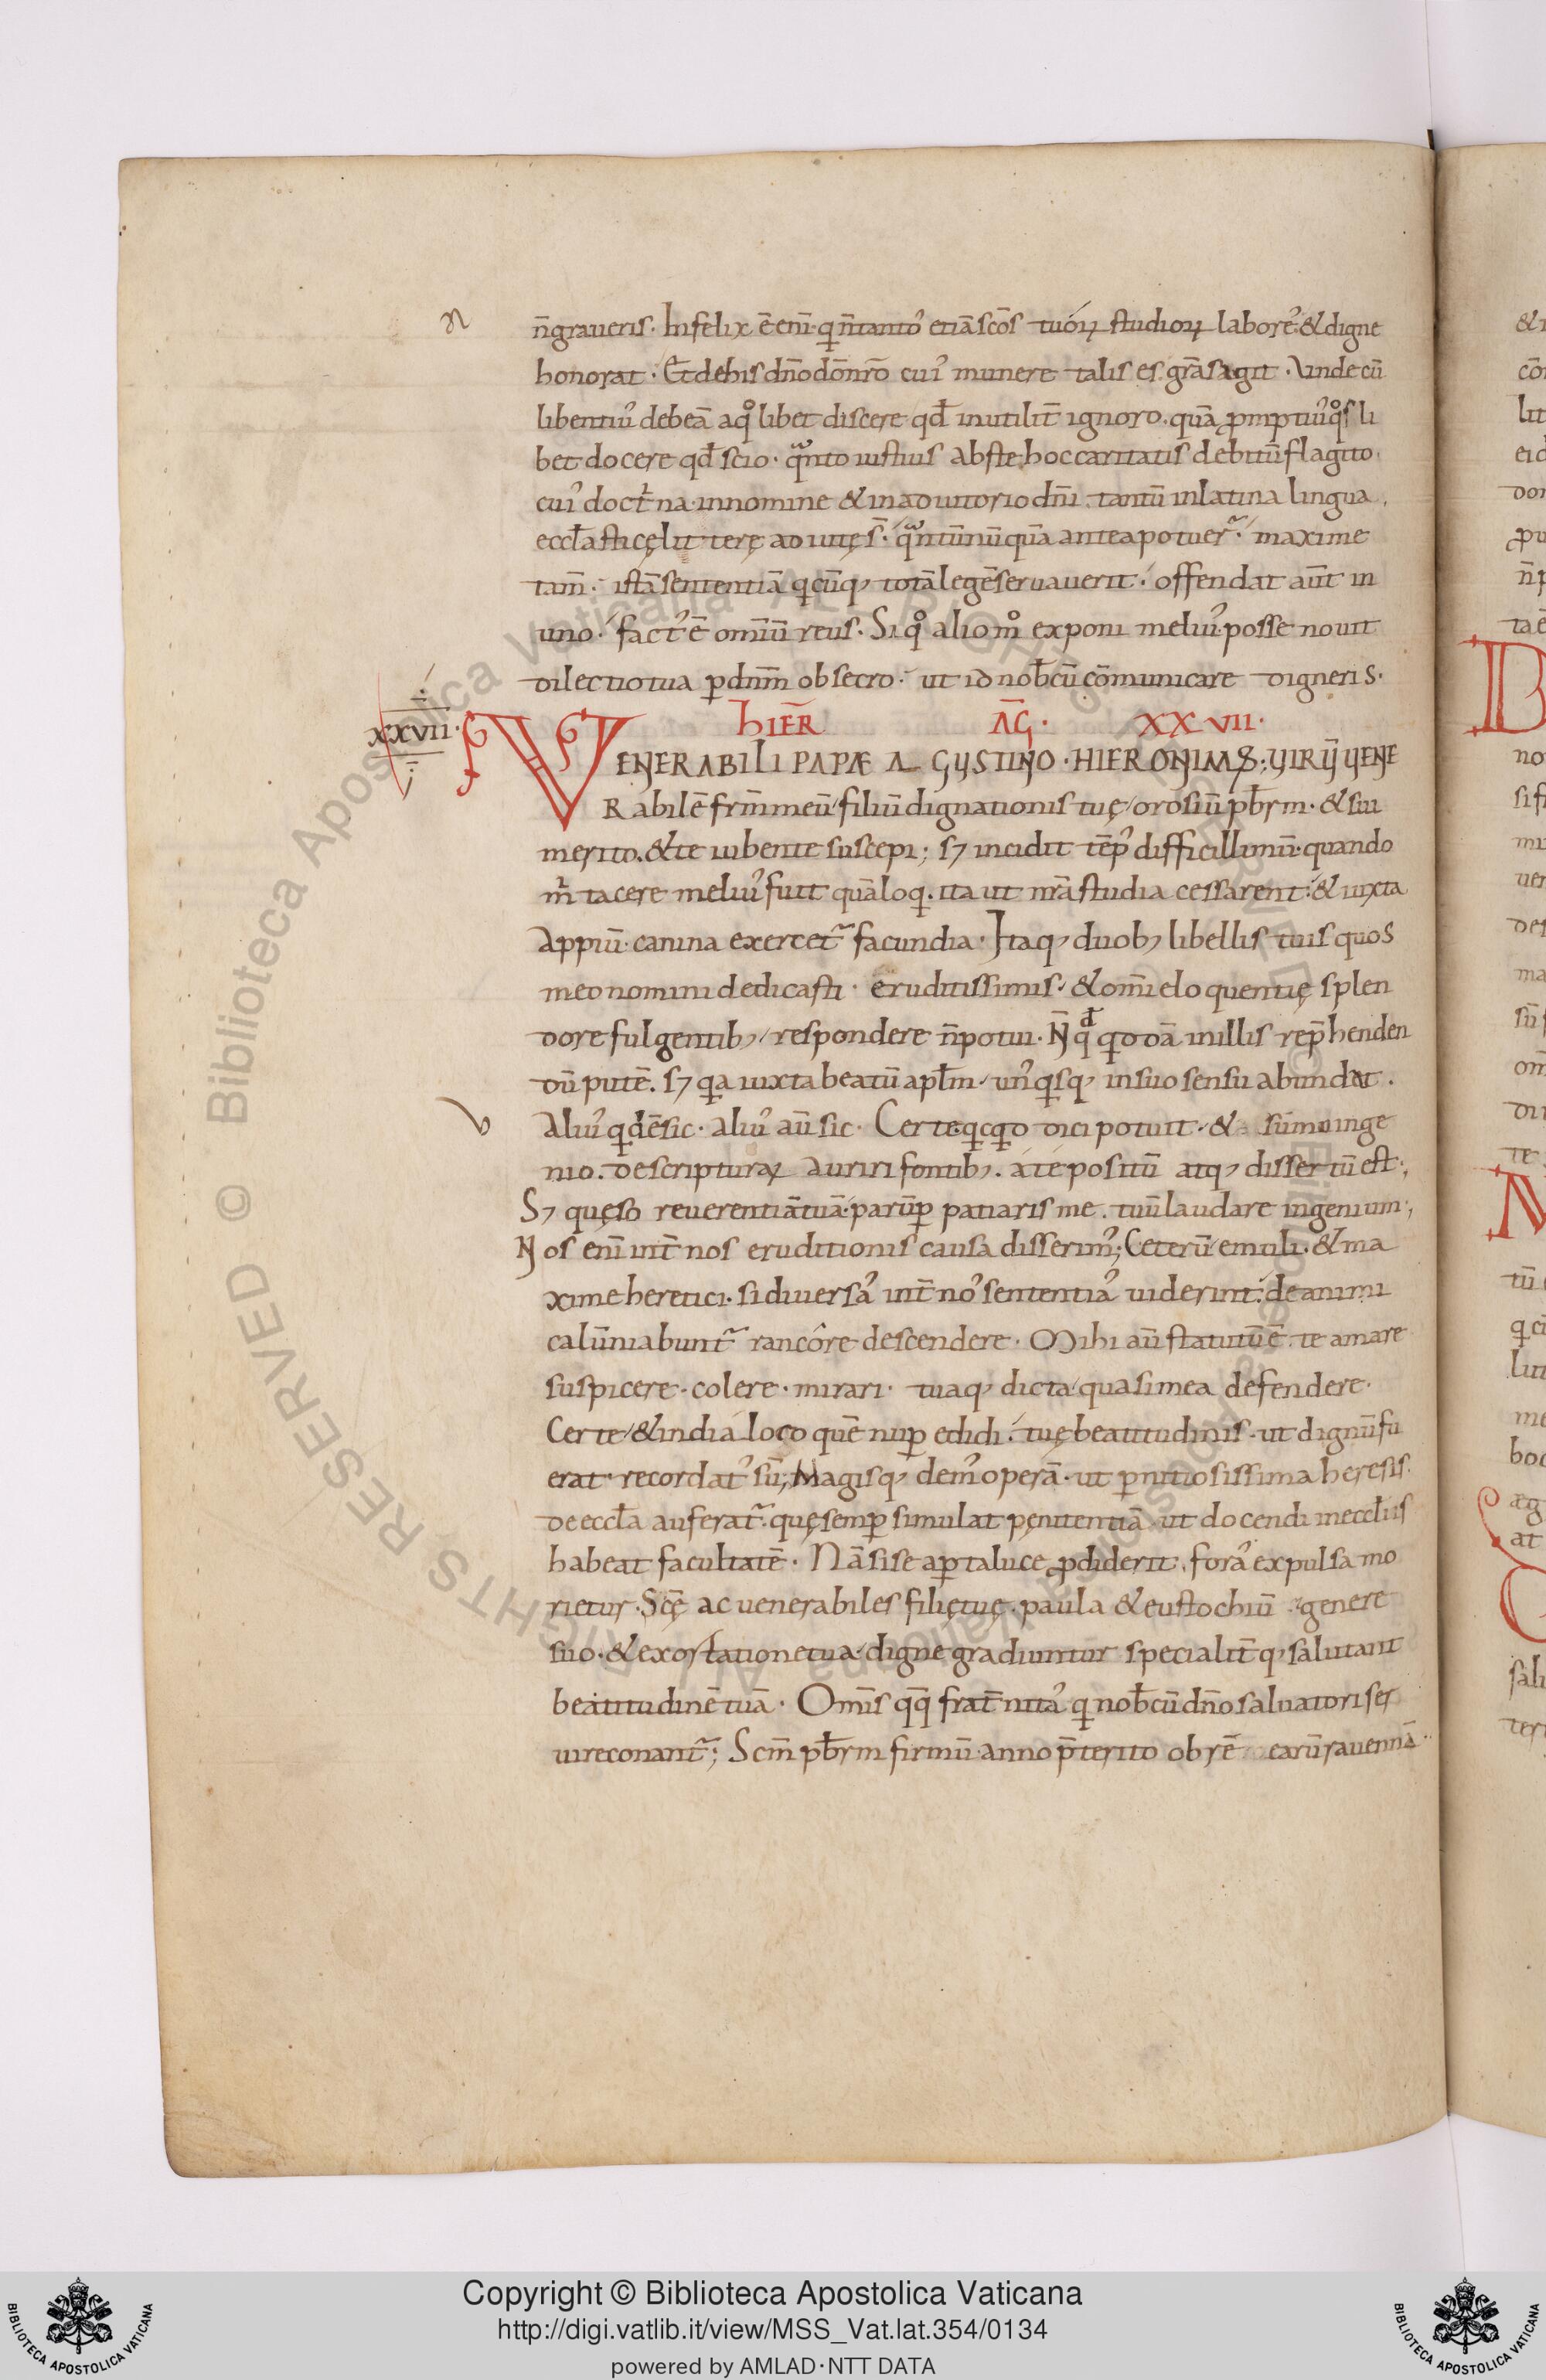 n̄graueris. Infelix ē eni᷎. qi n̄tantoʼ etiāscōs tuóꝝ studioꝝ laboreʼ. & digne
honorat. Et dehis dn̄o dō nr̄o cuiʼ munere talis es. grāsagit. Vnde cū
libentiuʼ debeā aqͦlibet discere qđ inutilit̄ ignoro. quā ꝓmptiuʼ qͦsli
bet docere qđ scio. qᷓnto iustius abste hoc caritatis debitū flagito.
cuiʼ doctͥna. innomine & inadiutorio dn̄i. tantū inlatina lingua.
eccl̄asticę litterę adiutę s̄. qᷓntū nūquā anteapotuer̃. maxime
tam̄. istā sententiā qicūq; totā legē seruauerit. offendat aūt in
uno. factʼ ē omīū reus. Siqͦ aliomͦ exponi meliuʼ posse nouit
dilectiotua ꝑdn̄m obsecro. ut id nob̄cū cōmunicare digneris.
XXVII.
HIER̄ AḠ. XXVII.
VENERABILI PAPÆ AGVSTINO. HIERONIMVS; VIRV̄ VENE
Rabilē fr̄m meū filiū dignationis tuę orosiū pb̄rm. & sui
merito. & te iubente suscepi; sꝫ incidit tēpʼ difficillimū. quando
mͥ tacere meliuʼ fuit quā loqi. ita ut nr̄a studia cessarent. & iuxta
appiū. canina exercet̃ facundia. Itaq; duob; libellis tuis quos
meo nomini dedicasti. eruditissimis. & om̄i eloquentię splen
dore fulgentib; respondere n̄potui. N̄ qđ qiddā inillis rep̄henden
dū putē. sꝫ qia iuxta beatū apl̄m. unʼqisq; insuo sensu abundat.
Aliuʼ qidē sic. aliuʼ aū sic. Certe qicqid dici potuit. & sūmo inge
nio. de scripturaꝝ auriri fontib;. áte positū atq; dissertū est;
Sꝫ quęso reuerentiā tuā. parūꝑ patiaris me. tuū laudare ingenium;
Nos enī int̄ nos eruditionis causa disserimʼ; Ceterū emuli. & ma
xime heretici. si diuersaʼ int̄ noʼ sententiaʼ uiderint. de animi
calūniabunt̃ rancôre descendere. Mihi aū statutū ē. te amare
suspicere. colere. mirari. tuaq; dicta quasi mea defendere.
Certe & indiáloco quē nuꝑ edidi. tuę beatitudinis. ut dignū fu
erat. recordatʼ sū; Magisq; demʼ operā. ut ꝑnitiosissima heresis.
deeccl̄a auferat̃. quę semꝑ simulat pęnitentiā. ut docendi ineccl̄iis
habeat facultatē. Nā si se aꝑta luce ꝓdiderit. foraʼ expulsa mo
rietur. Scę̄ ac uenerabiles filię tuę. paula & eustochiū genere
suo. & exortatione tua. digne gradiuntur specialit̄q; salutant
beatitudinē tuā. Om̄is qq̄ frat̄nitaʼ qi nob̄cū dn̄o saluatori ser
uireconant̃; Scm̄ pb̄rm firmū. anno p̄terito ob rē earū rauennā
Copyright © Biblioteca Apostolica Vaticana
http://digi.vatlib.it/view/MSS_Vat.lat.354/0134
powered by AMLAD·NTT DATA
BIBLIOTECA APOSTOLICA VATICANA
BIBLIOTECA APOSTOLICA VATICANA